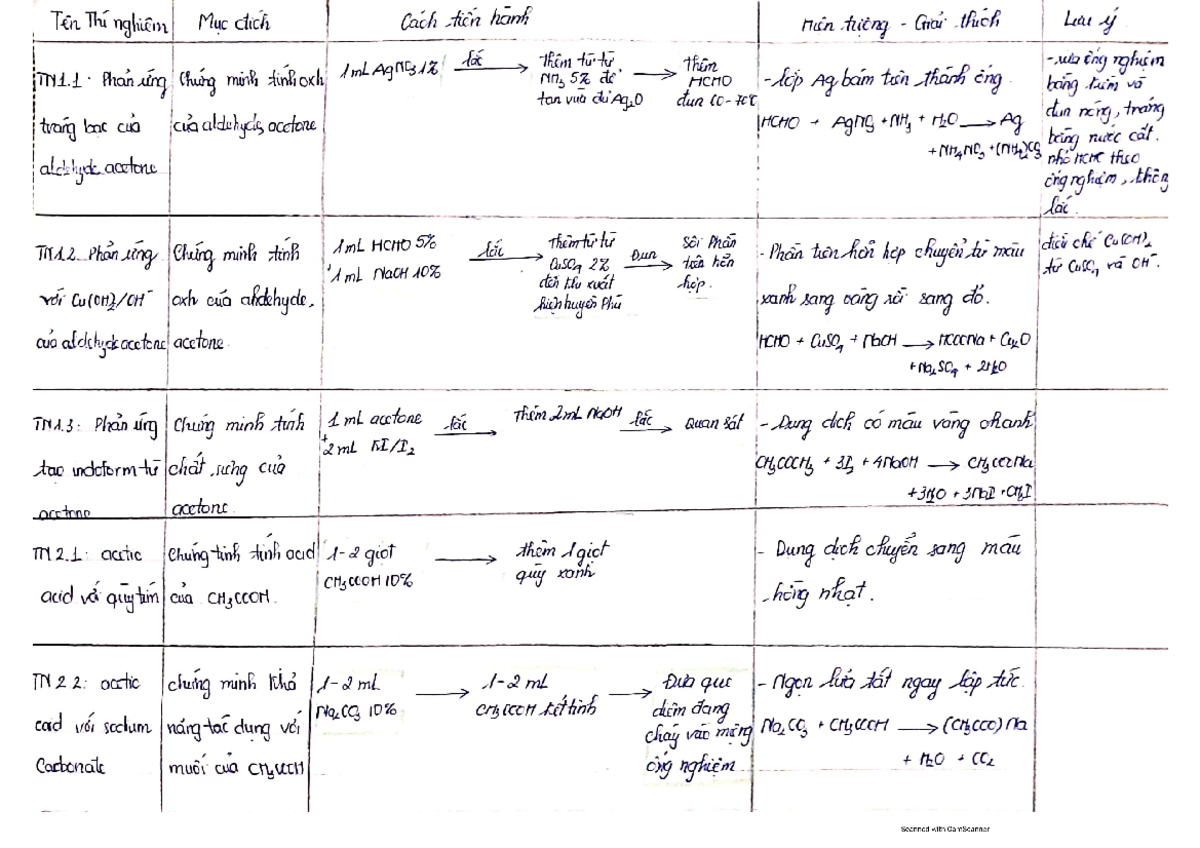 Tên Thí nghiệm
Mục đích
Cách tiến hành
Hiện tượng - Giải thích
Lưu ý
TN1.1: Phản ứng
tráng bạc của
aldehyde, acetone
Chứng minh tính oxh
của aldehyde, acetone
1mL AgNO3 1%
lắc
thêm từ từ
NH3 5% để
tan vừa đủ Ag2O
thêm
HCHO
đun 60-70°C
- lớp Ag bám trên thành ống.
HCHO + AgNO3 + NH3 + H2O → Ag
+ NH4NO3 + (NH4)2CO3
- rửa ống nghiệm
bằng kiềm và
đun nóng, tráng
bằng nước cất.
nhỏ HCHO theo
ống nghiệm, không
lắc.
TN1.2. Phản ứng
với Cu(OH)2/OH-
của aldehyde acetone
Chứng minh tính
oxh của aldehyde,
acetone.
1mL HCHO 5%
+ 1mL NaOH 10%
lắc
Thêm từ từ
CuSO4 2%
đến khi xuất
hiện huyền phù
Đun
Sôi Phần
trên hỗn
hợp.
- Phần trên hỗn hợp chuyển từ màu
xanh sang vàng rồi sang đỏ.
HCHO + CuSO4 + NaOH → HCOONa + Cu2O
+ Na2SO4 + 2H2O
điều chế Cu(OH)2
từ CuSO4 và OH-.
TN1.3: Phản ứng
tạo iodoform từ
acetone
Chứng minh tính
chất riêng của
acetone.
1mL acetone
+ 2mL KI/I2
lắc
Thêm 2mL NaOH
lắc
Quan sát
- Dung dịch có màu vàng chanh
CH3COCH3 + 3I2 + 4NaOH → CH3COONa
+ 3H2O + 3NaI + CHI3
TN2.1: acetic
acid với quỳ tím
Chứng tính tính acid
của CH3COOH.
1-2 giọt
CH3COOH 10%
thêm 1 giọt
quỳ xanh
- Dung dịch chuyển sang màu
hồng nhạt.
TN2.2: acetic
acid với sodium
Carbonate
chứng minh khả
năng tác dụng với
muối của CH3COOH
1-2 mL
Na2CO3 10%
1-2 mL
CH3COOH kết tinh
Đưa que
diêm đang
cháy vào miệng
ống nghiệm
- Ngọn lửa tắt ngay lập tức.
Na2CO3 + CH3COOH → (CH3COO)Na
+ H2O + CO2
Scanned with CamScanner